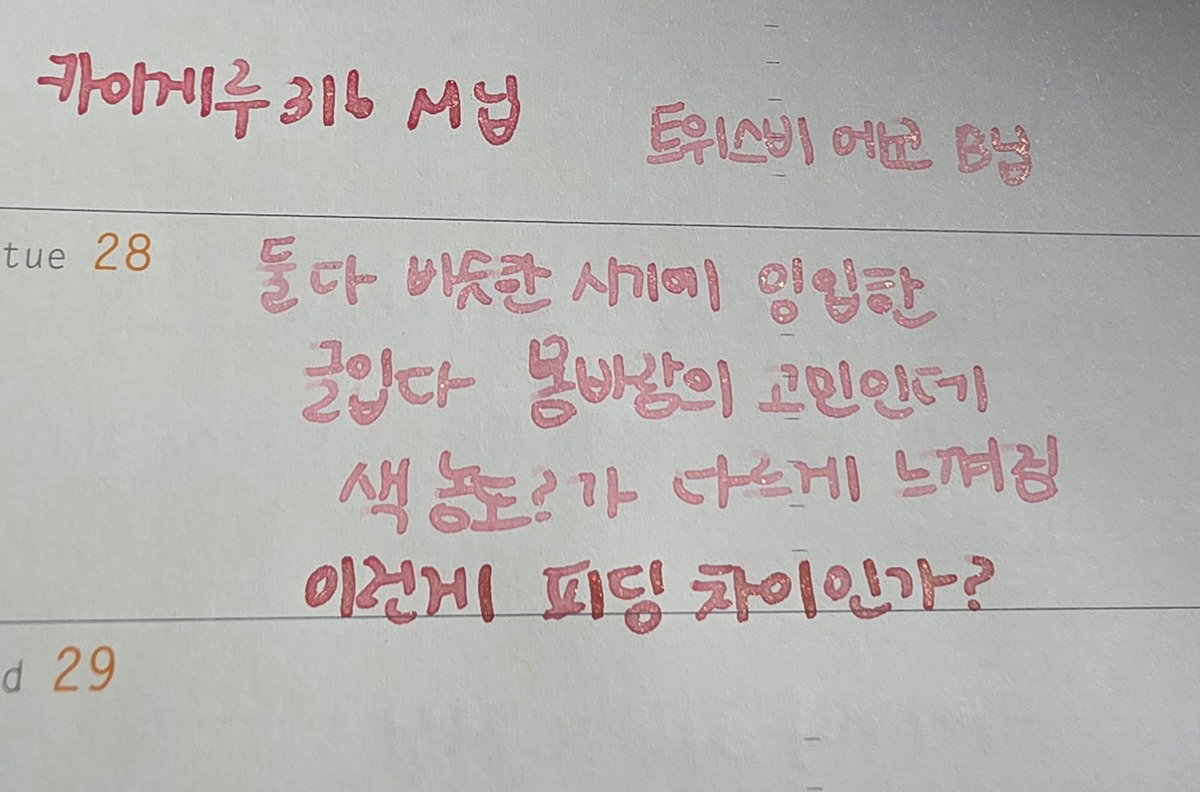 카이게루 316 M닙
트위스비 에코 B닙
tue 28
둘다 비슷한 시기에 잉입한
글입다 몽바랑의 고민인데
색 농도?가 다르게 느껴짐
이런게 피딩 차이인가?
d 29